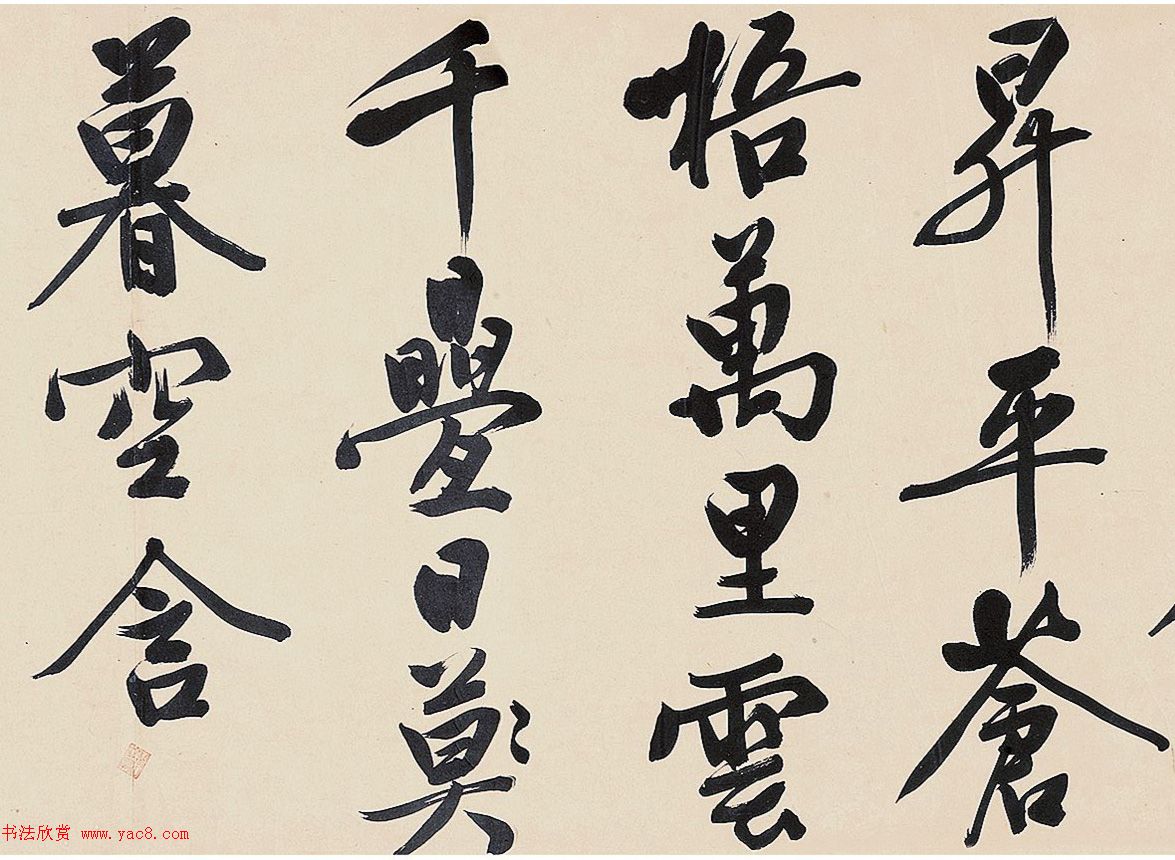 昇平蒼
梧萬里雲
千疊日莫
暮空含
书法欣赏 www.yac8.com